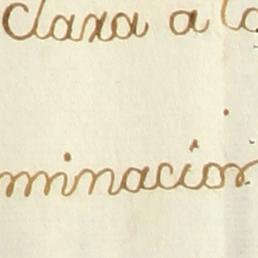 claxa a la
minacion